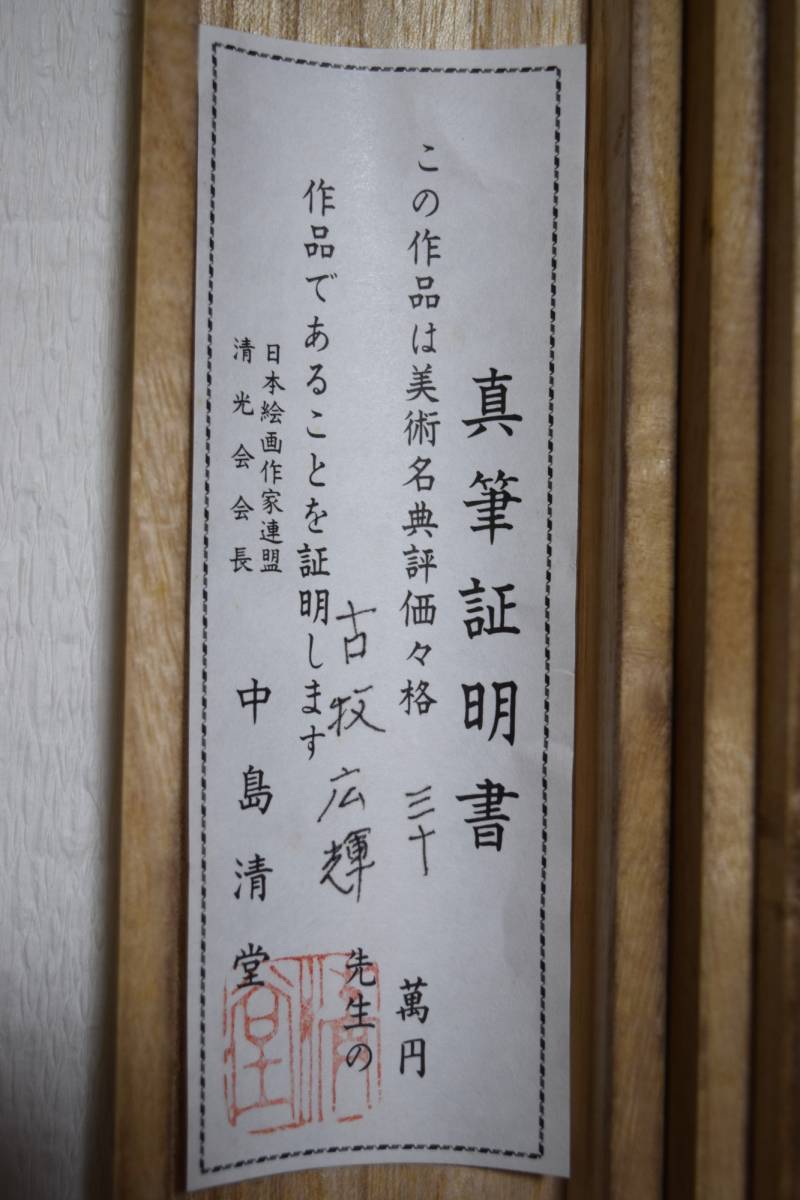 真筆証明書
この作品は美術名典評価々格 三十 萬円
古牧広輝 先生の
作品であることを証明します
日本絵画作家連盟
清光会会長
中島清堂
清堂